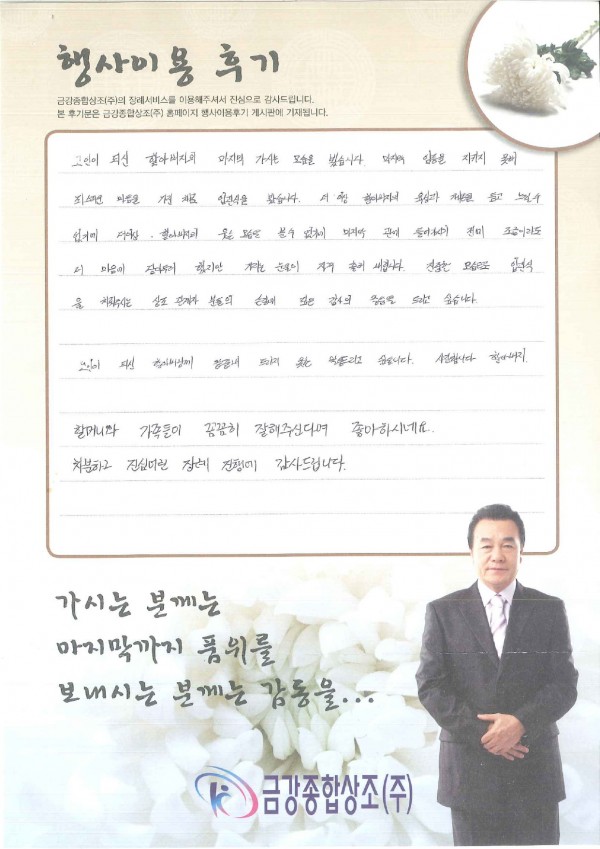 행사이용 후기
금강종합상조(주)의 장례서비스를 이용해주셔서 진심으로 감사드립니다.
본 후기문은 금강종합상조(주) 홈페이지 행사이용후기 게시판에 기재됩니다.
고인이 되신 할아버지의 마지막 가시는 모습을 봤습니다. 마지막 임종을 지키지 못해
죄스러운 마음을 가진 채로 입관식을 봤습니다. 더 이상 할아버지의 목소리 체온을 듣고 느낄 수
없기에 할아버지의 웃는 모습도 볼 수 없기에 마지막 관에 들어가시기 전
제 마음이
모습으로 입관식
을 치러주시는 상조 관계자 분들의 손길에 깊은 감사의 말씀을 드리고 싶습니다.
고인이 되신 할아버님께 드리지 못했던 말 드리고 싶습니다. 사랑합니다 할아버지.
할머니와 가족들이 꼼꼼히 잘해주신다며 좋아하시네요.
차분하고 진심어린 장례 진행에 감사드립니다.
가시는 분께는
마지막까지 품위를
보내시는 분께는 감동을...
금강종합상조(주)